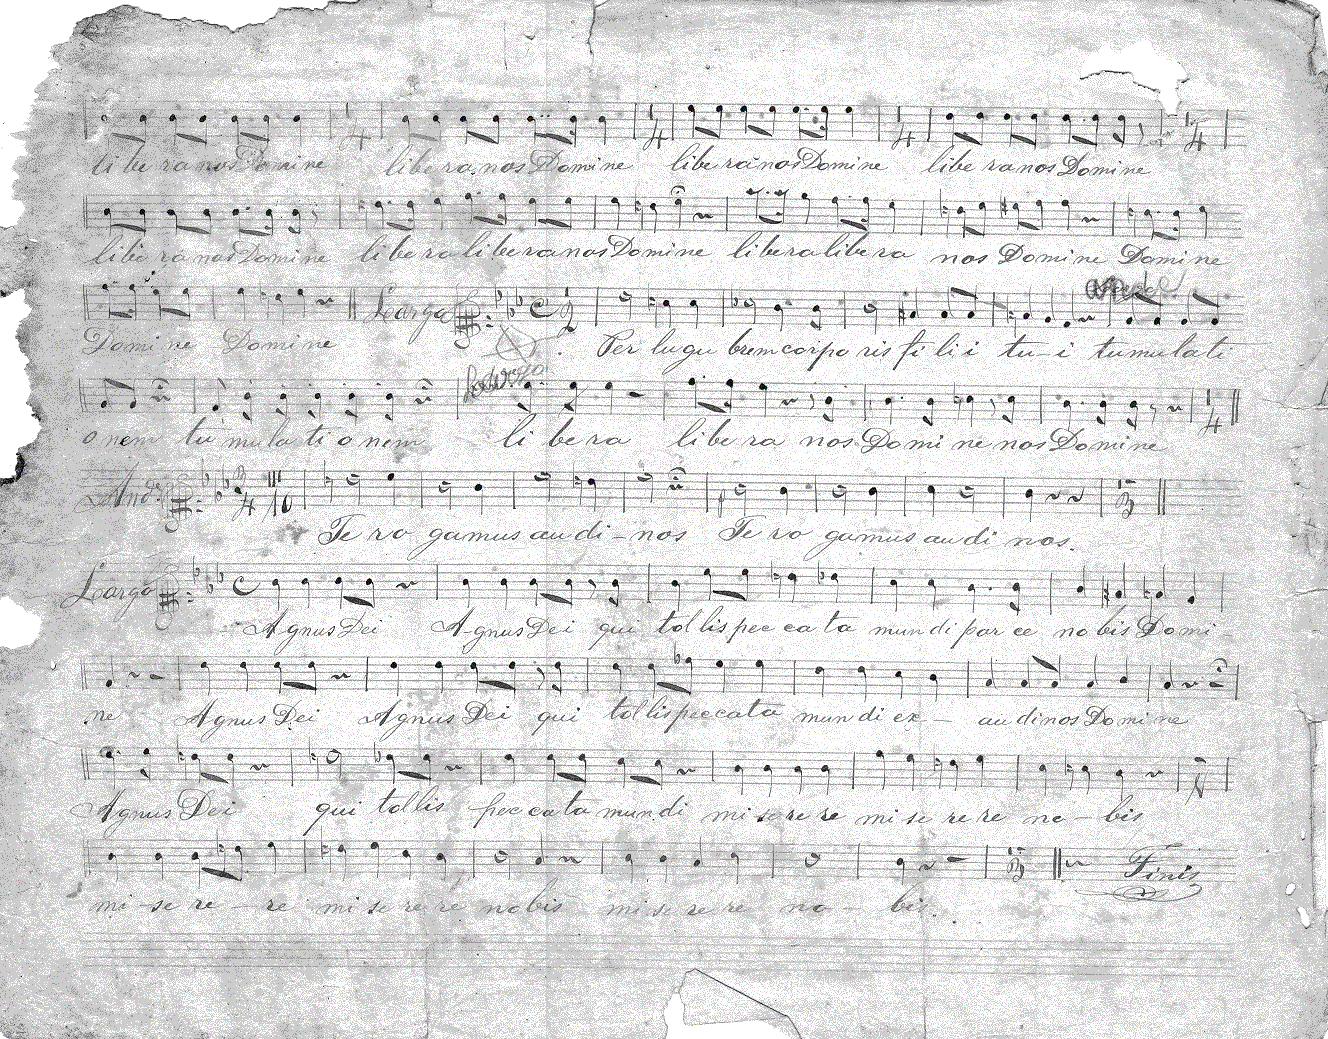 4 4 4 4
libe ra nos Domine libe ra nos Domine libe ra nos Domine libe ra nos Domine
libe ra nos Domine libe ra libe ra nos Domine libe ra libe ra nos Domine Domine
Largo C 2
Domine Domine Per lugu brem corpo ris fi li i tu - i tumulati
o nem tu mula ti o nem li be ra libe ra nos Domi ne nos Domine
4
And.e 3/4 10
Te ro gamus au di - nos Te ro gamus au di nos.
Largo C
Agnus Dei A-gnus Dei qui tol lis pec ca ta mun di par ce no bis Domi
ne Agnus Dei Agnus Dei qui tol lis peccata mun di ex - au di nos Domi ne
Agnus Dei qui tol lis pec ca ta mun di mi se re re mi se re re no - bis
Finis
mi - se re - re mi se re re nobis mi se re re no - bis.